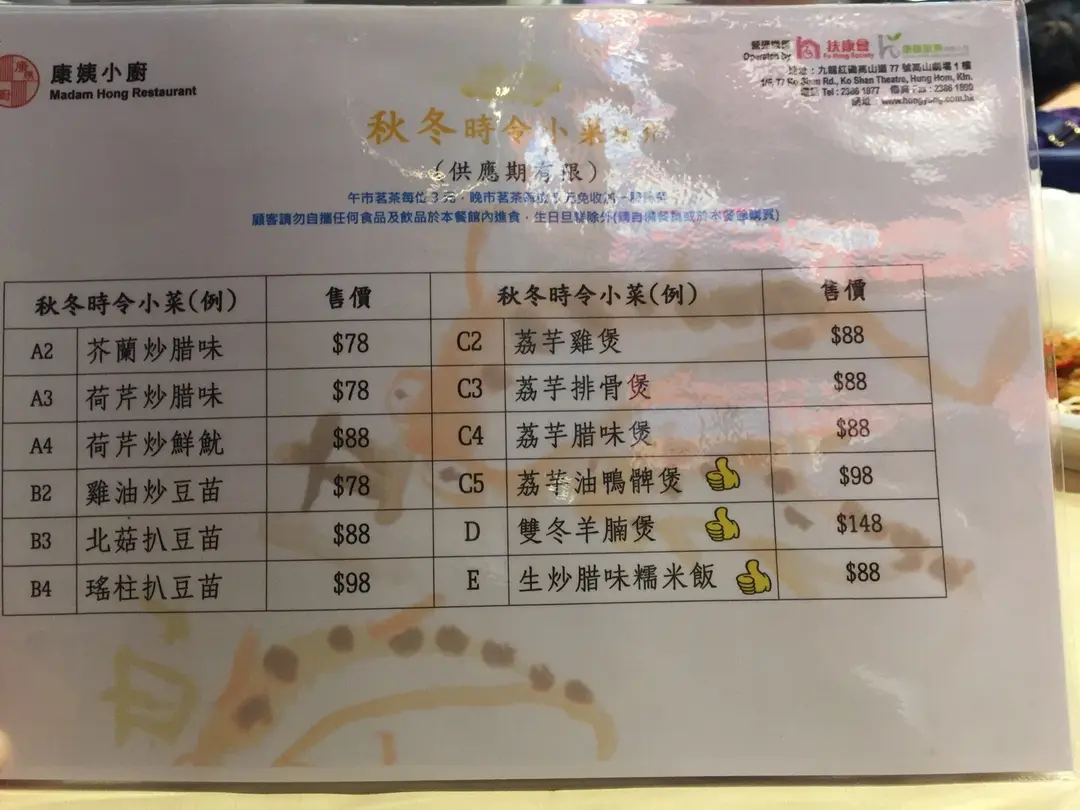 康姨小廚
Madam Hong Restaurant
營運機構 扶康會 康融服務有限公司
Operated by Fu Hong Society
地址:九龍紅磡高山道 77 號高山劇場 1 樓
1/F, 77 Ko Shan Rd., Ko Shan Theatre, Hung Hom, Kln.
電話 Tel : 2386 1977 傳真 Fax : 2386 1900
網址:www.hongyung.com.hk
秋冬時令小菜
(供應期有限)
午市茗茶每位 3 元,晚市茗茶
顧客請勿自攜任何食品及飲品於本餐館內進食,生日旦糕除外
秋冬時令小菜(例) 售價 秋冬時令小菜(例) 售價
A2 芥蘭炒腊味 $78 C2 荔芋雞煲 $88
A3 荷芹炒腊味 $78 C3 荔芋排骨煲 $88
A4 荷芹炒鮮魷 $88 C4 荔芋腊味煲 $88
B2 雞油炒豆苗 $78 C5 荔芋油鴨髀煲 $98
B3 北菇扒豆苗 $88 D 雙冬羊腩煲 $148
B4 瑤柱扒豆苗 $98 E 生炒腊味糯米飯 $88